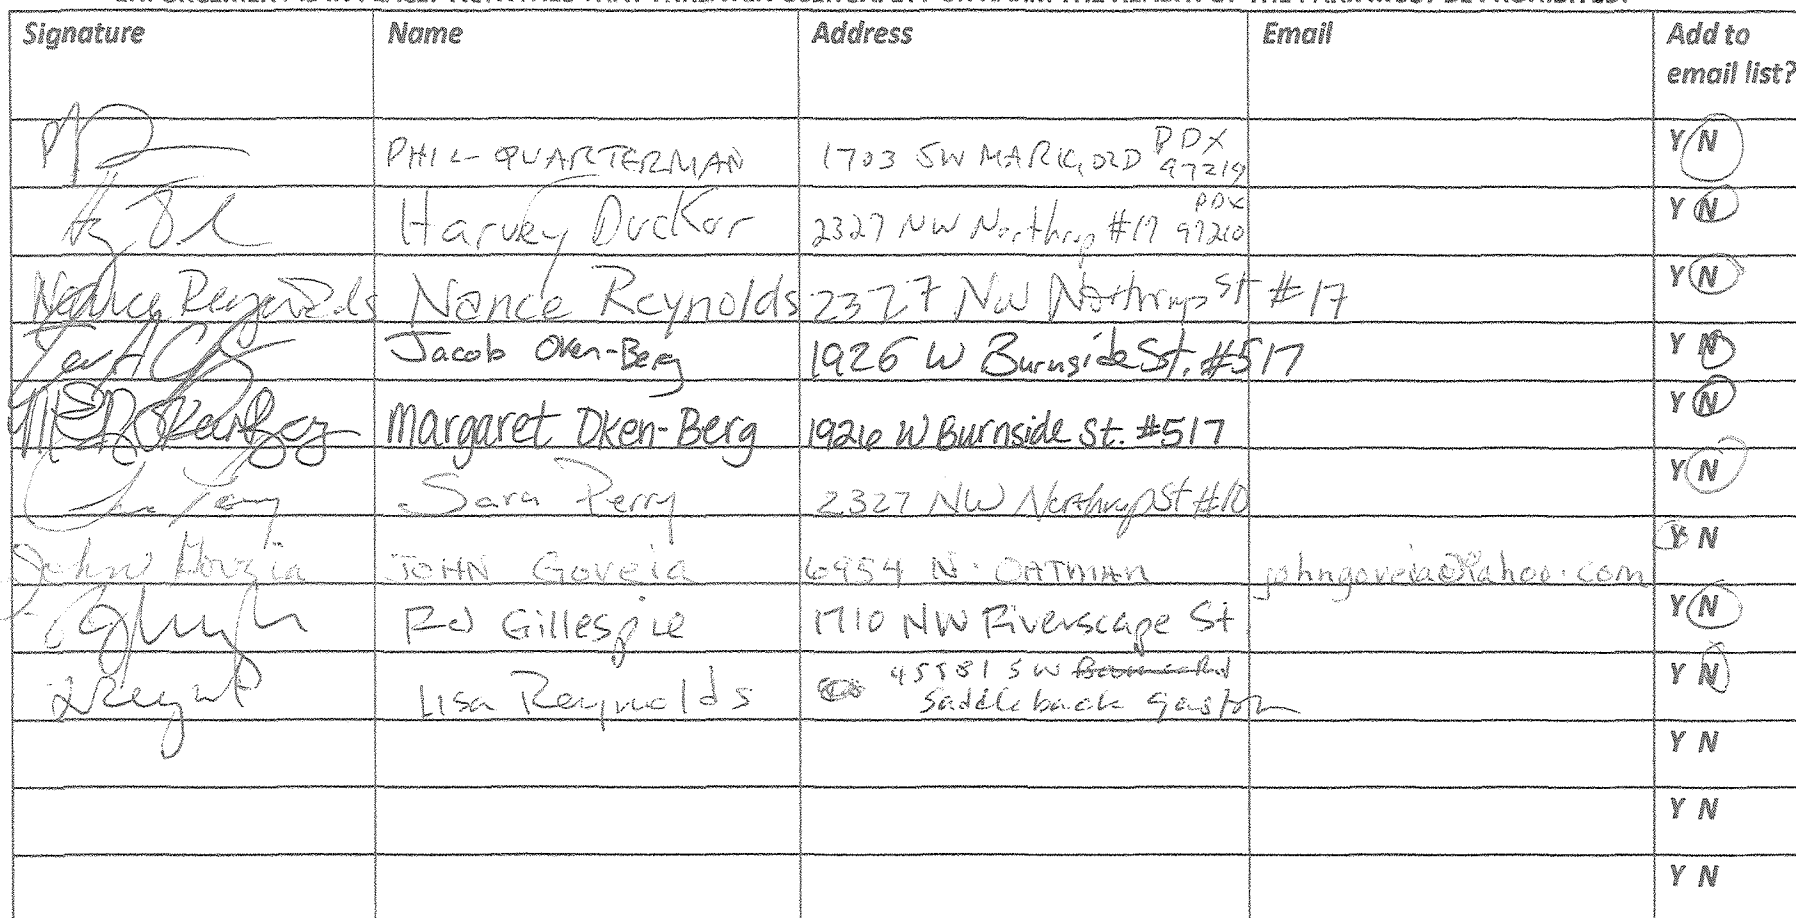 Signature Name Address Email Add to
email list?
PHIL QUARTERMAN 1703 SW MARIGOLD PDX 97219 Y N
Harvey Ducker 2327 NW Northrup #17 PDX 97210 Y N
Nance Reynolds Nance Reynolds 2327 NW Northrup St #17 Y N
Jacob Oken-Berg 1926 W Burnside St. #517 Y N
Margaret Oken-Berg 1926 W Burnside St. #517 Y N
Sara Perry 2327 NW Northrup St #10 Y N
John Goveia JOHN Goveia 6954 N. OATMAN johngoveia@yahoo.com Y N
Ed Gillespie 1710 NW Riverscape St Y N
Lisa Reynolds 45581 SW
Saddleback Gaston Y N
Y N
Y N
Y N